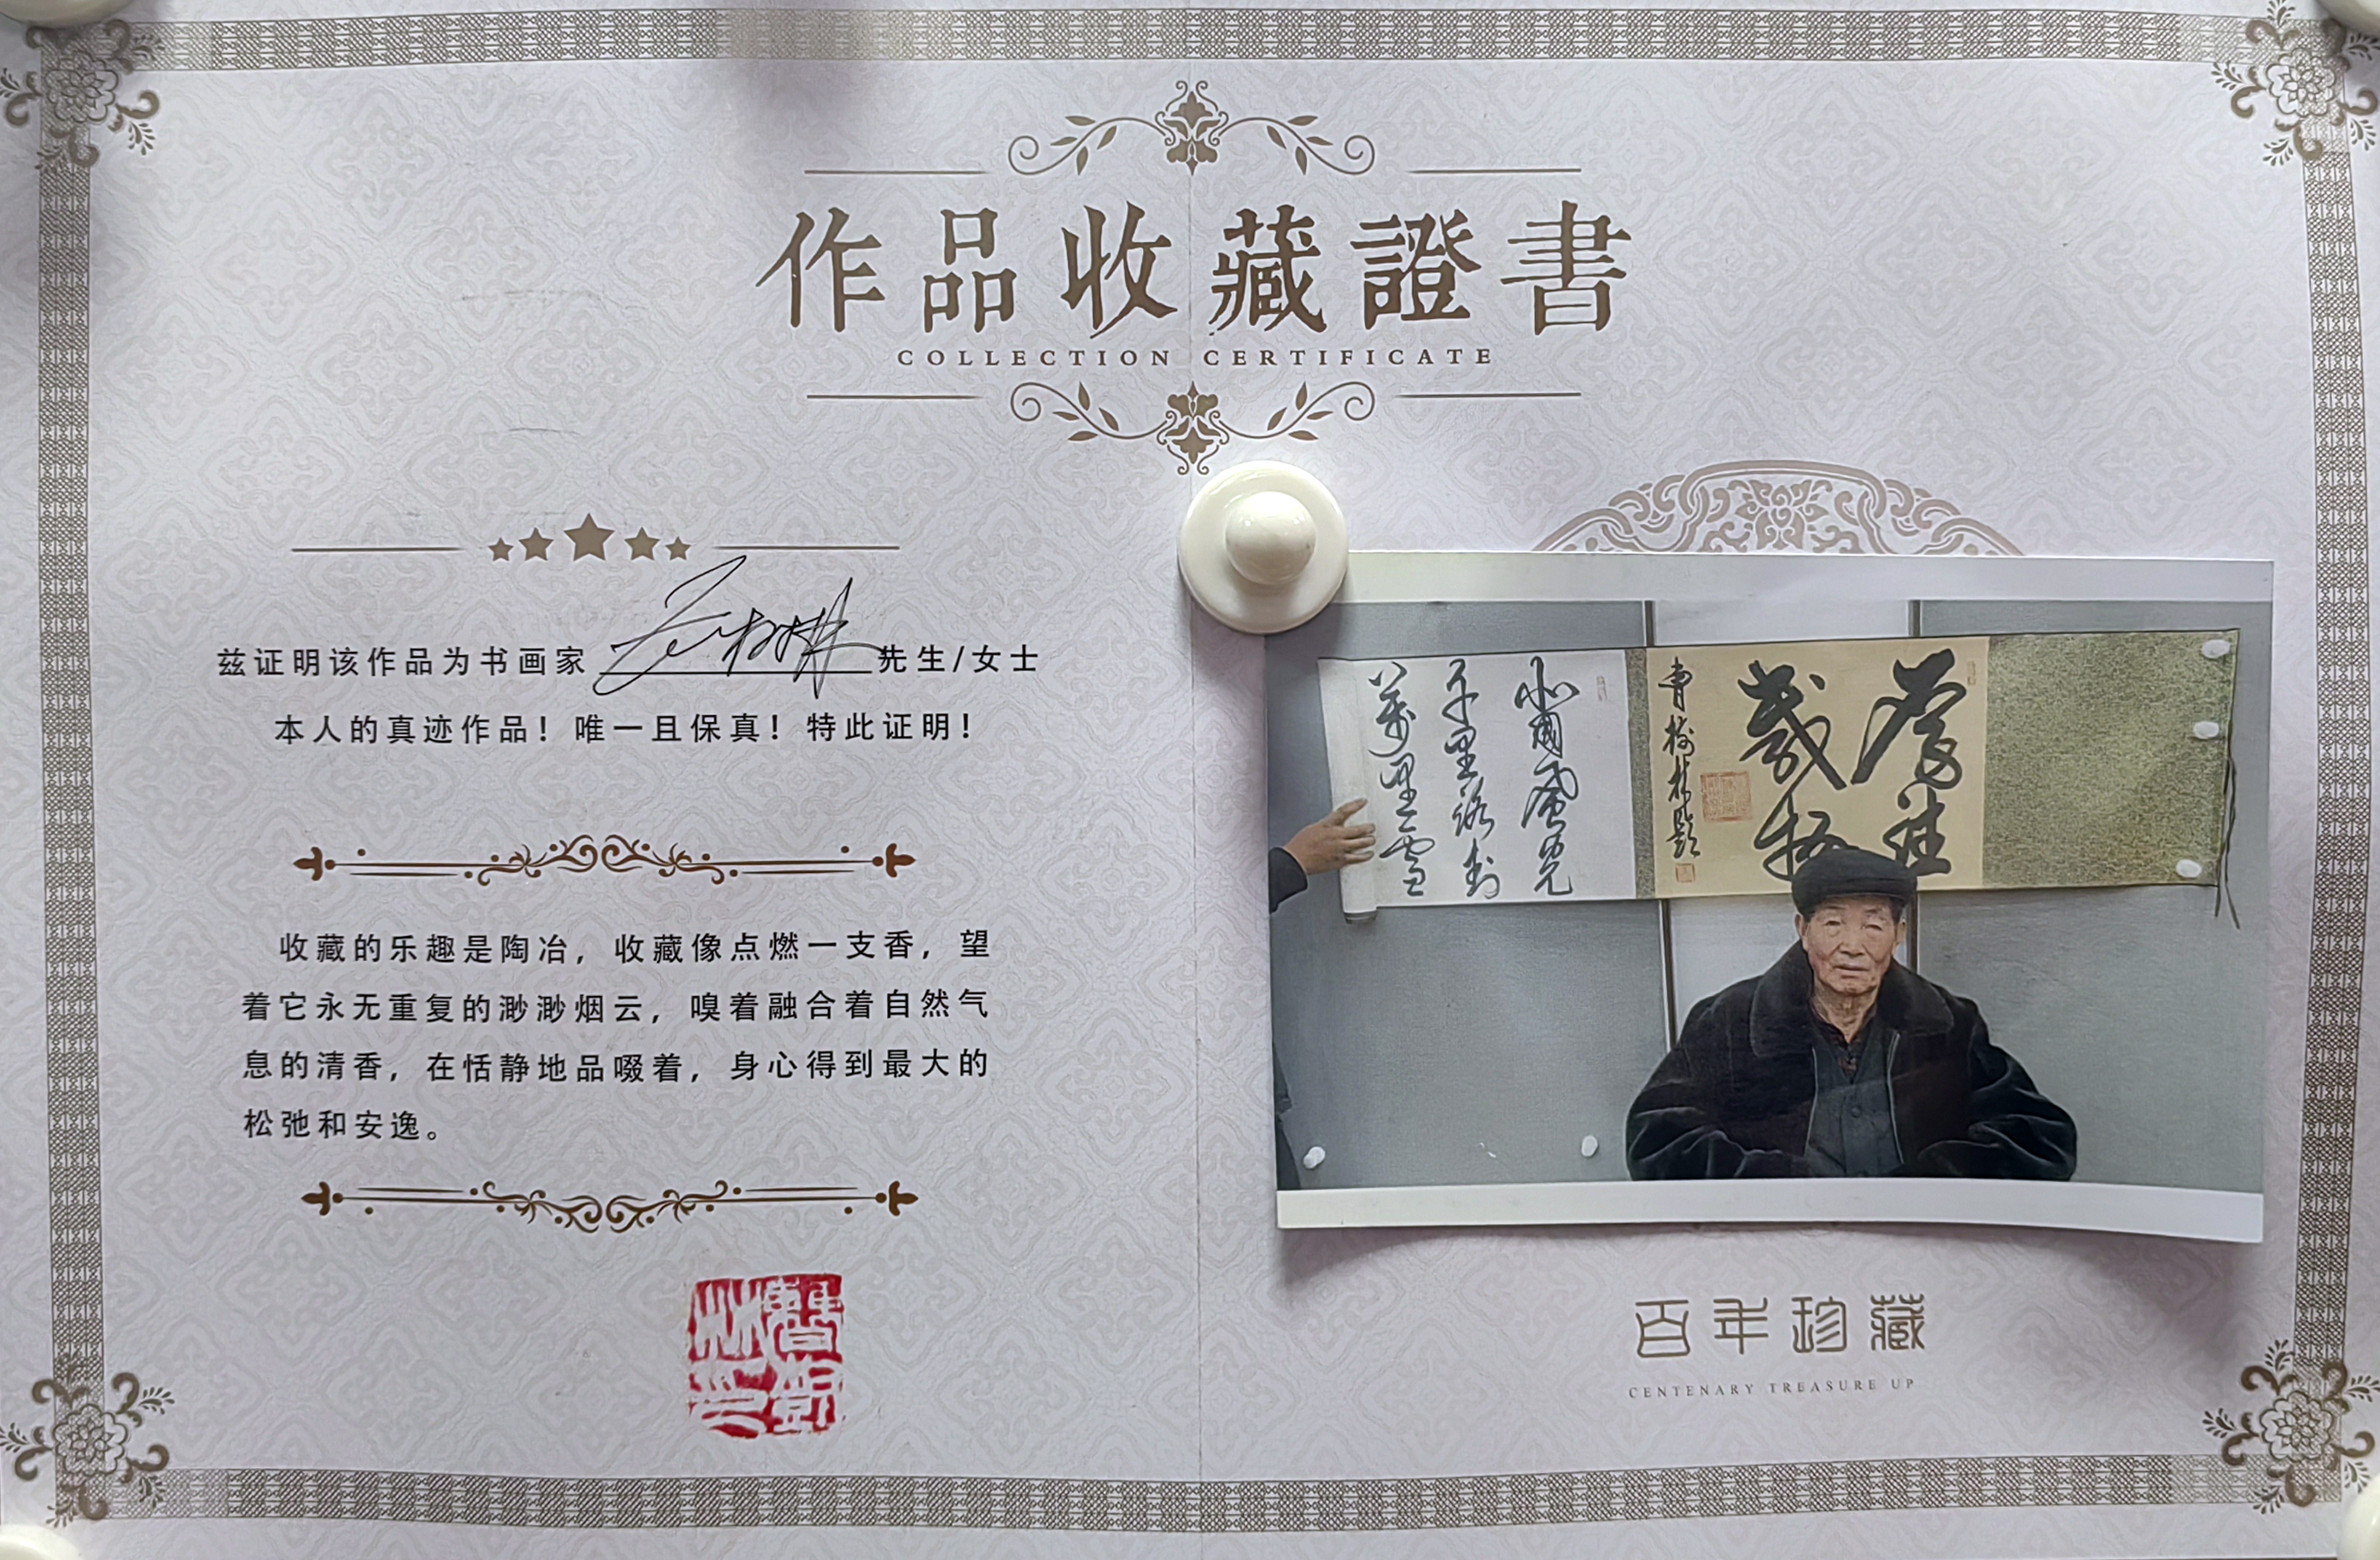 作品收藏證書
COLLECTION CERTIFICATE
兹证明该作品为书画家 曹树林 先生/女士
本人的真迹作品！唯一且保真！特此证明！
收藏的乐趣是陶冶，收藏像点燃一支香，望
着它永无重复的渺渺烟云，嗅着融合着自然气
息的清香，在恬静地品啜着，身心得到最大的
松弛和安逸。
曹树林题
北國風光
千里冰封
萬里雪
百年珍藏
CENTENARY TREASURE UP